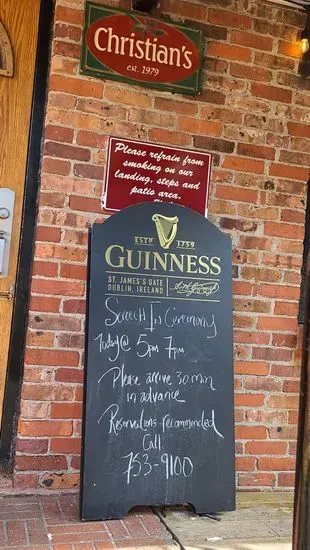 Christian's
est. 1979
Please refrain from
smoking on our
landing, steps and
patio area.
ESTD 1759
GUINNESS
ST. JAMES'S GATE
DUBLIN, IRELAND
Screech In Ceremony
Today @ 5pm 7pm
Please arrive 30 min
in advance
Reservations recommended
Call
753-9100